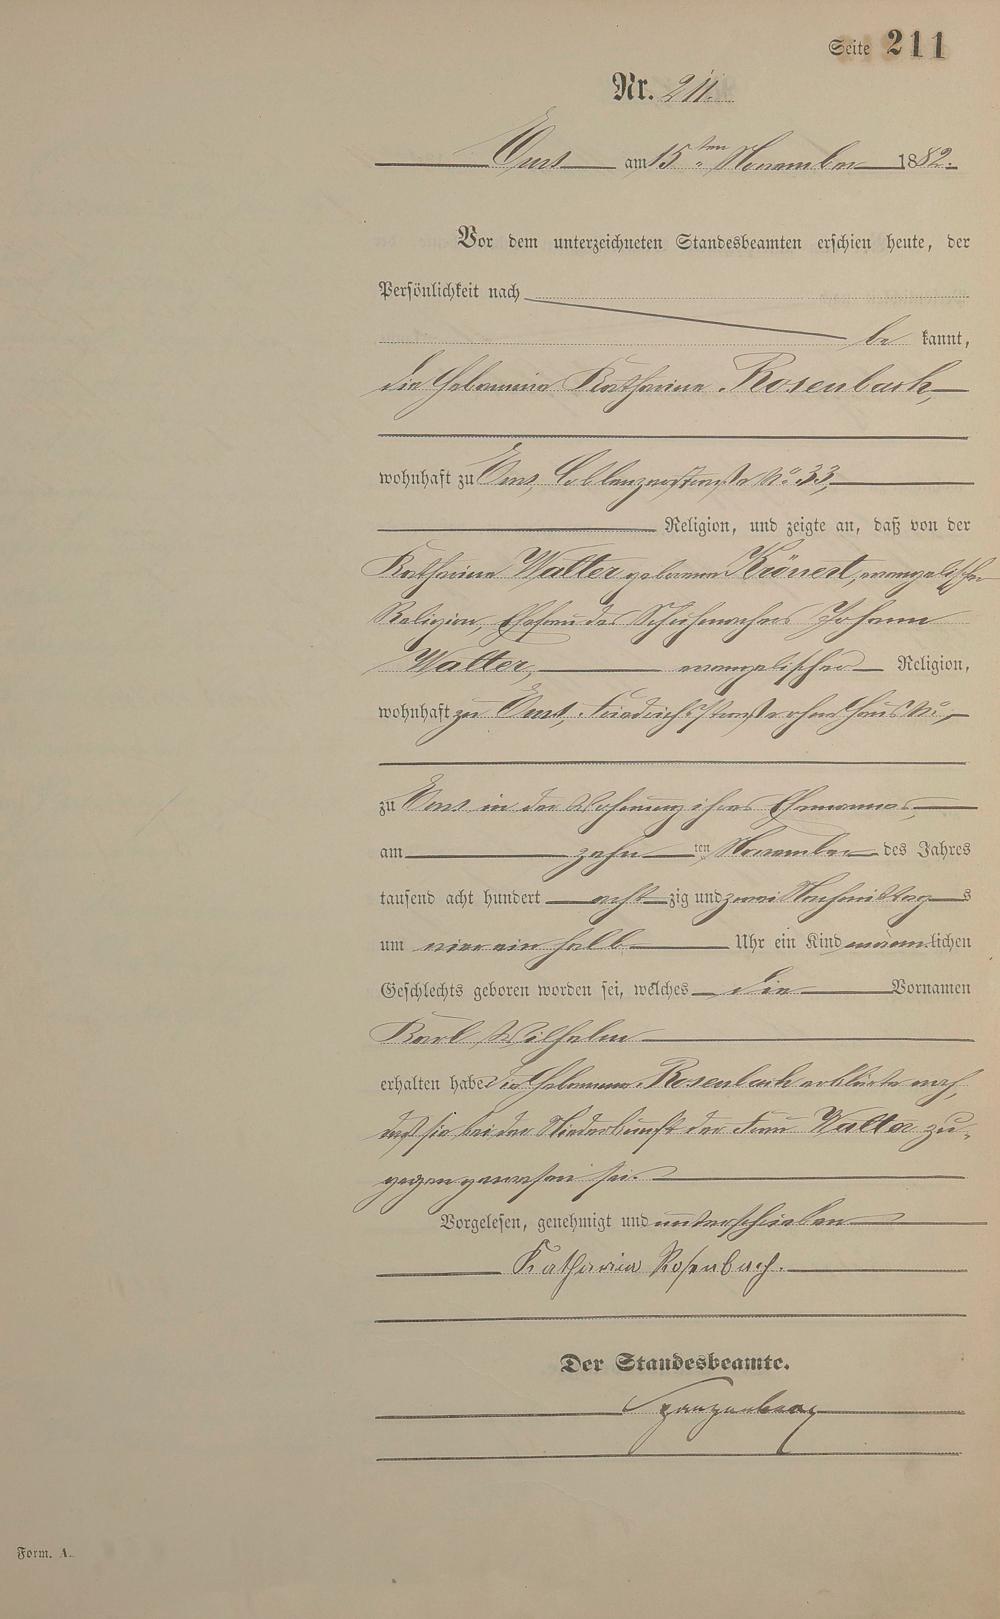 Seite 211
Nr. 211.
Ems am 15ten November 1882.
Vor dem unterzeichneten Standesbeamten erschien heute, der
Persönlichkeit nach
be kannt,
die Hebamme Katharine Rosenbach,
wohnhaft zu Ems, Coblenzerstraße No 33,
Religion, und zeigte an, daß von der
Katharine Walter geborenen Krönert, evangelischer
Religion, Ehefrau des Schuhmachers Johann
Walter, evangelischer Religion,
wohnhaft zu Ems, Friedrichsstraße ohne Haus No,
zu Ems in der Wohnung ihres Ehemannes,
am zehn ten November des Jahres
tausend acht hundert acht zig und zwei Nachmittag s
um vier ein halb Uhr ein Kind männ lichen
Geschlechts geboren worden sei, welches die Vornamen
Karl Wilhelm
erhalten habe. Die Hebamme Rosenbach erklärte noch,
daß sie bei der Niederkunft der Frau Walter zu-
gegen gewesen sei.
Vorgelesen, genehmigt und unterschrieben
Katharina Rosenbach.
Der Standesbeamte.
Spangenberg
Form. A.